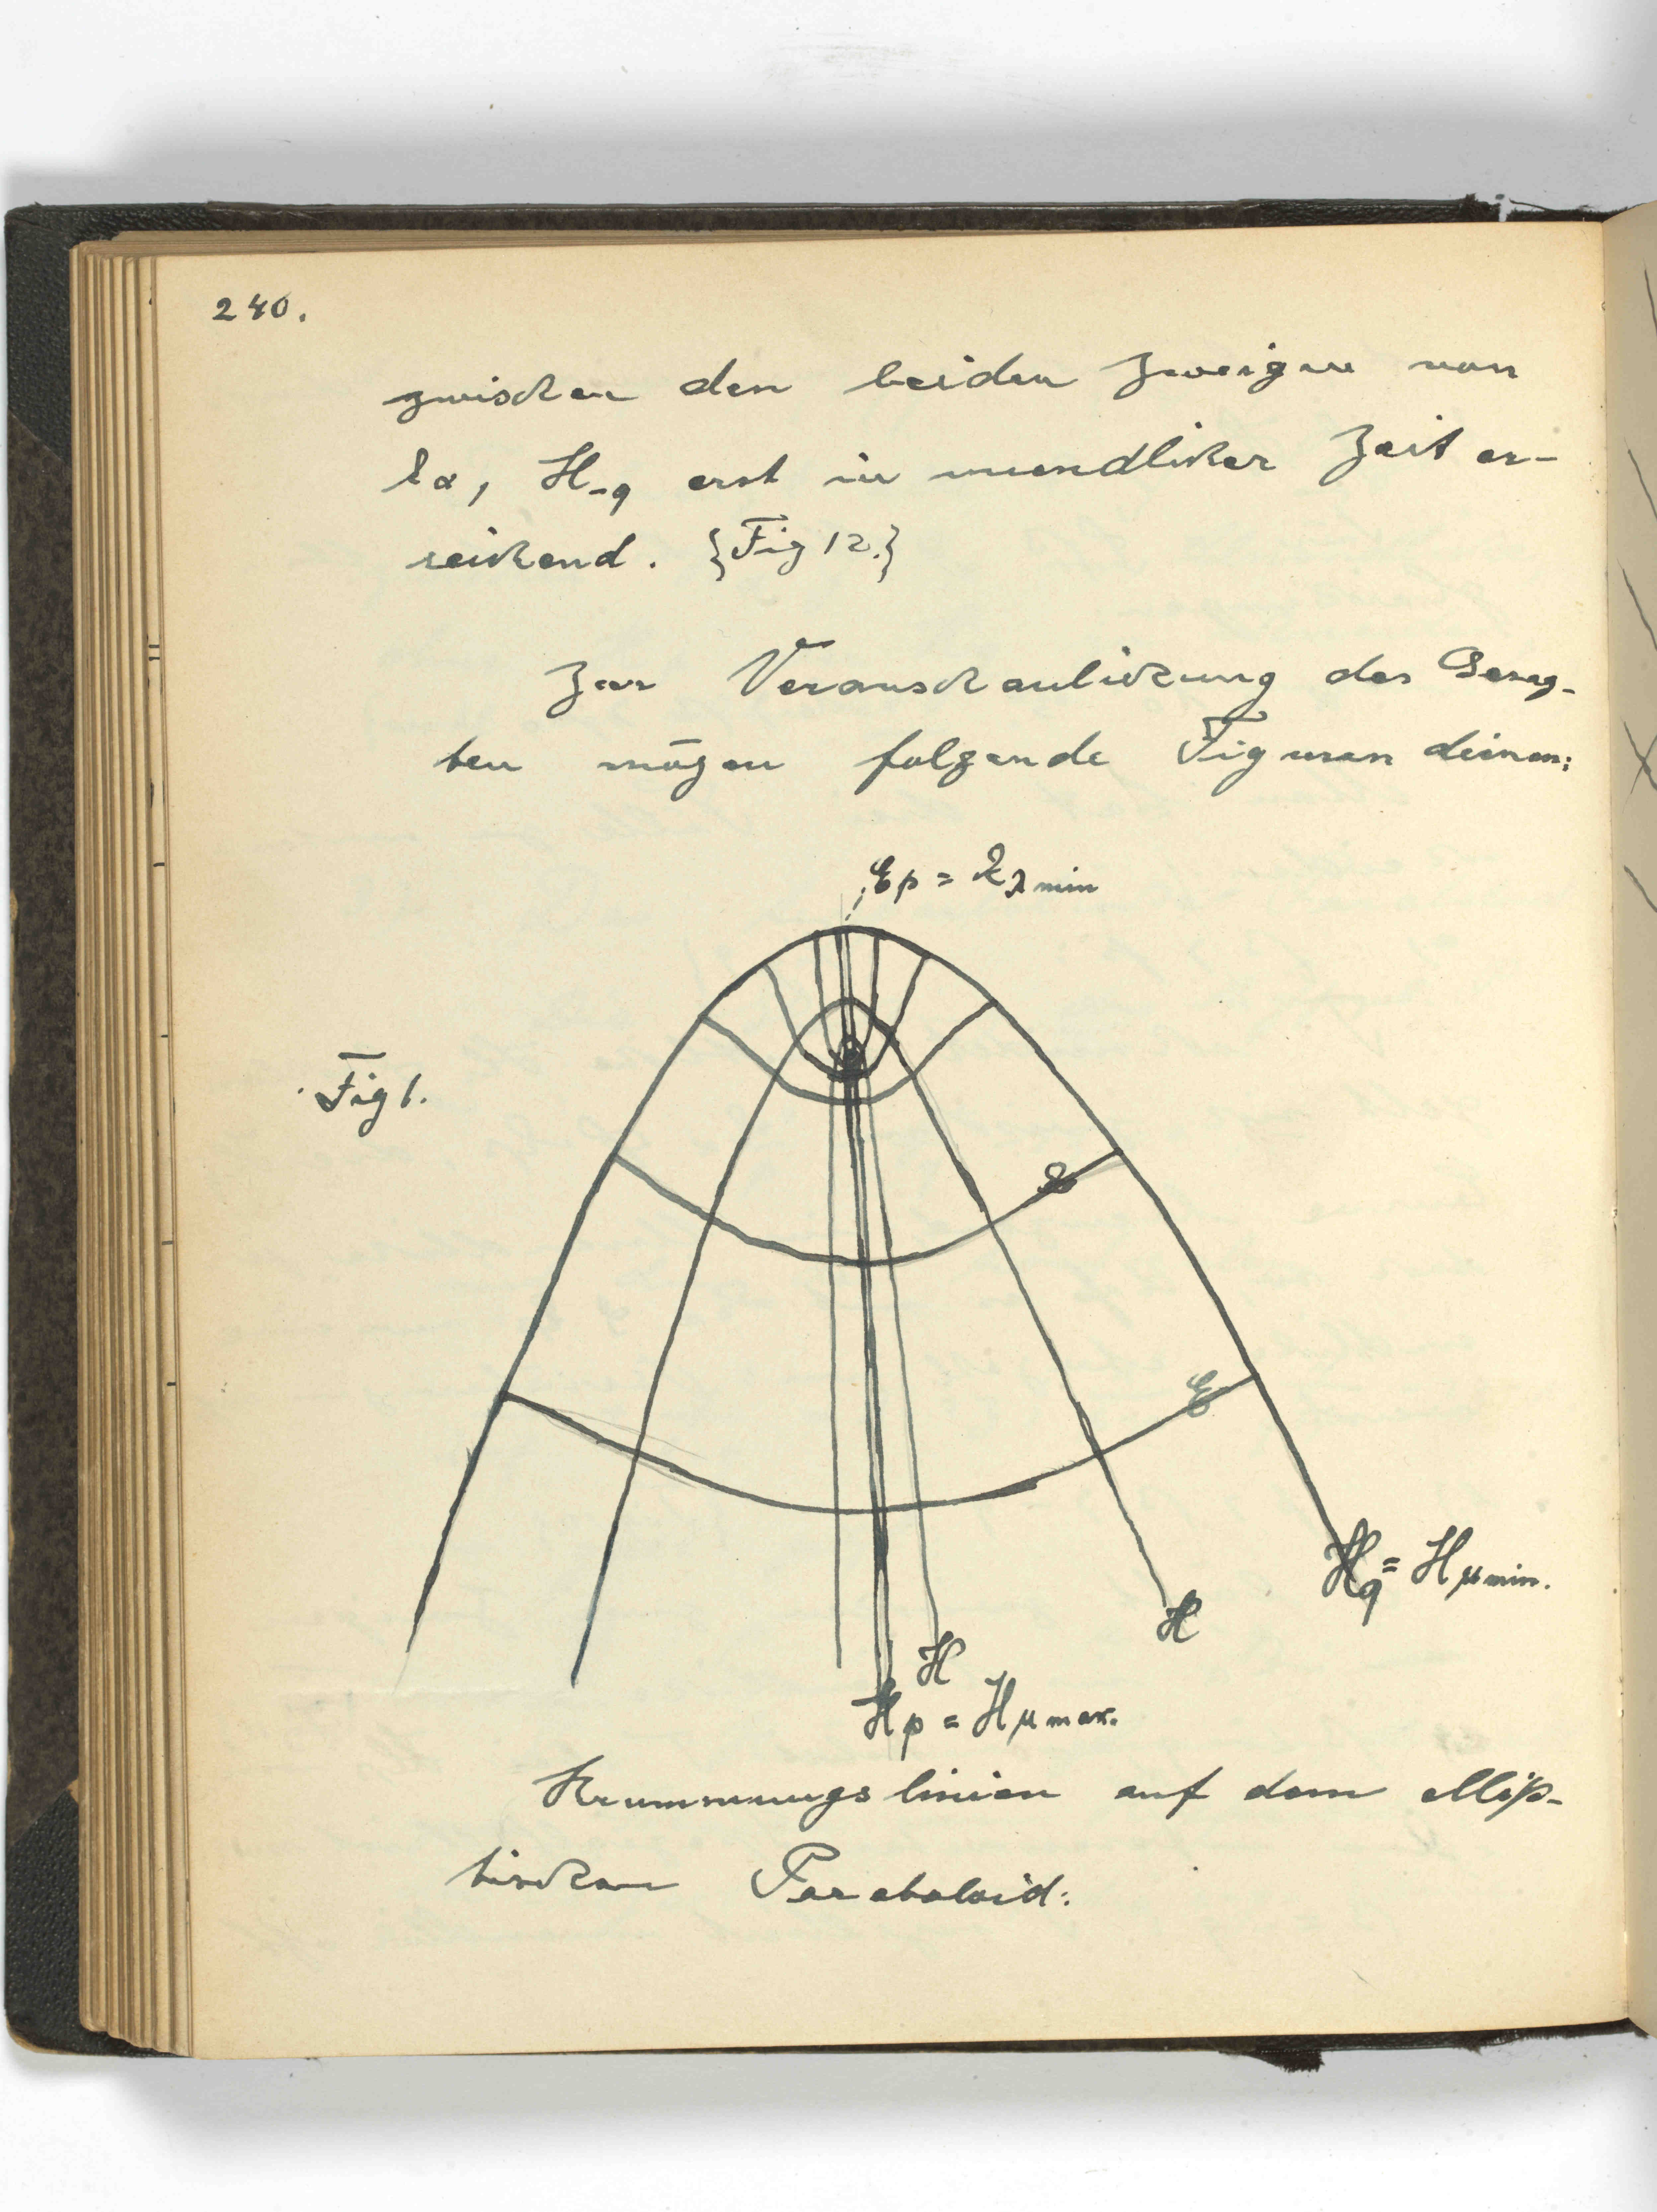 240.
zwischen den beiden Zweigen von
lα, H-q erst in unendlicher Zeit er-
reichend. {Fig 12.}
Zur Veranschaulichung des Gesag-
ten mögen folgende Figuren deinen:
Ep = λ min
Fig 1.
E
Hq = Hμ min.
H
H
Hp = Hμ max.
Krummungslinien auf dem ellip-
tischen Paraboloid: